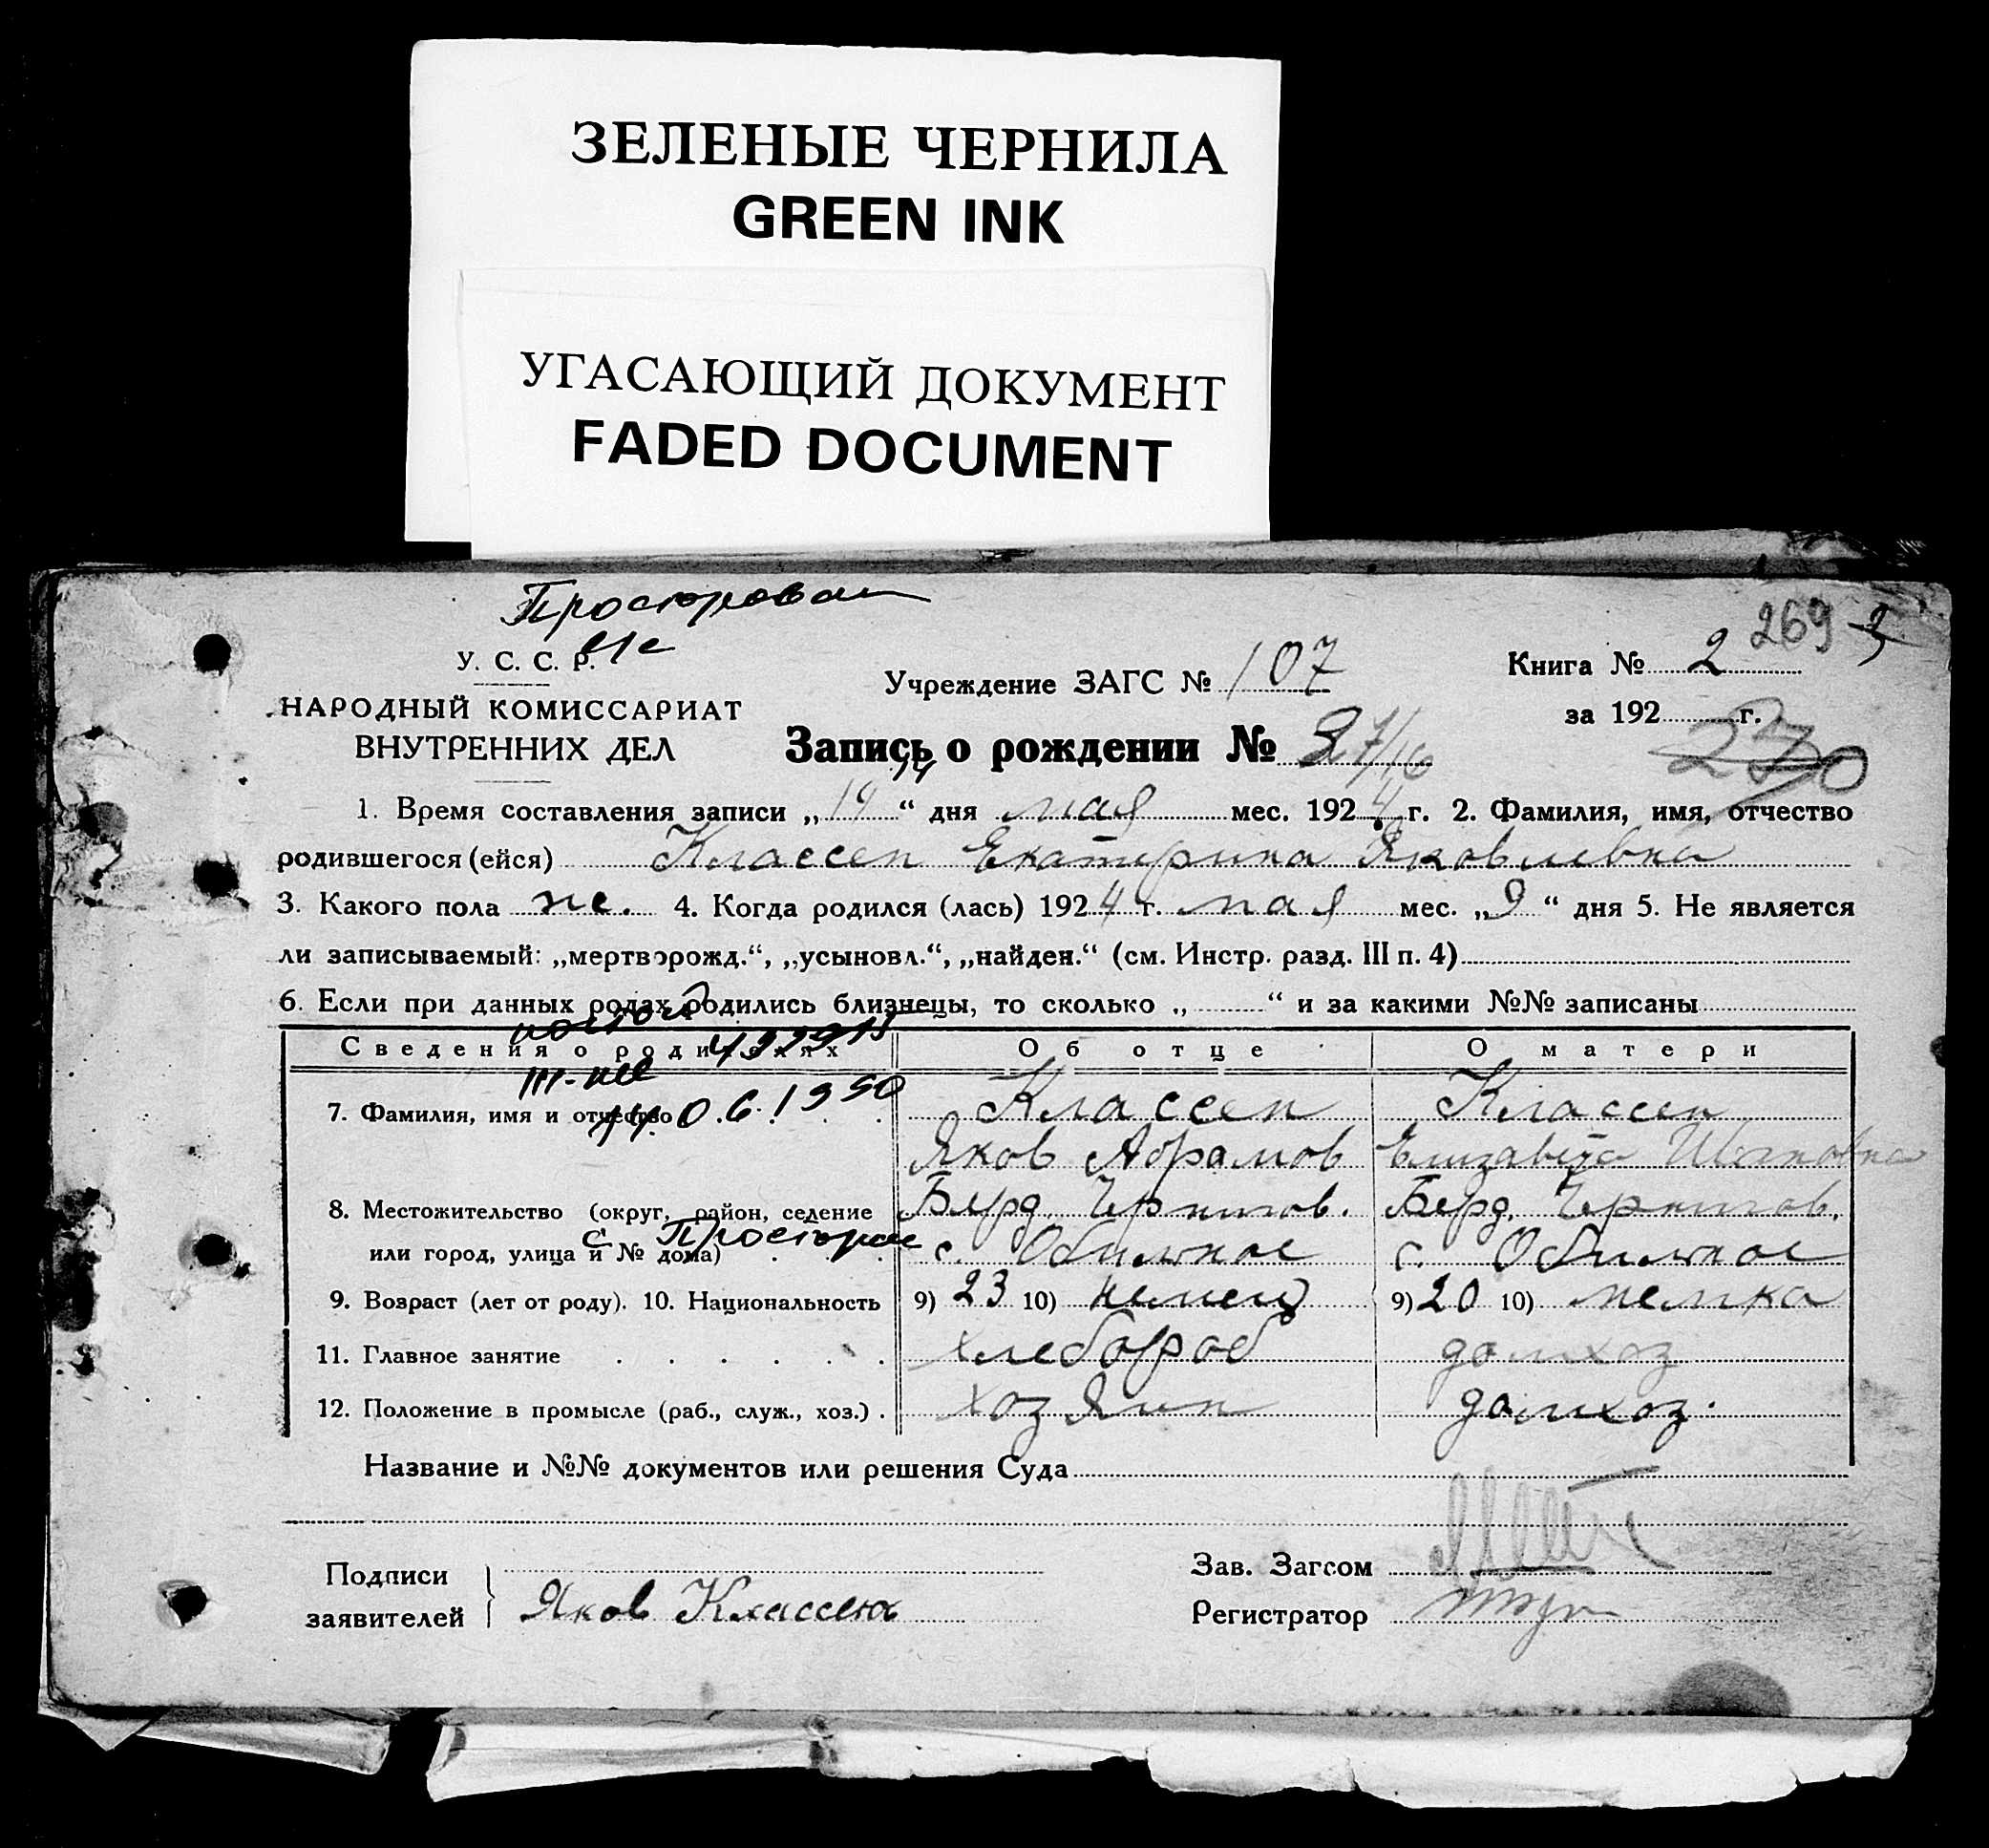 ЗЕЛЕНЫЕ ЧЕРНИЛА
GREEN INK
УГАСАЮЩИЙ ДОКУМЕНТ
FADED DOCUMENT
269
У. С. С. Р.
Учреждение ЗАГС № 107
Книга № 2
НАРОДНЫЙ КОМИССАРИАТ
ВНУТРЕННИХ ДЕЛ
за 192 г.
230
Запись о рождении № 37/16
1. Время составления записи „14“ дня мая мес. 1924 г. 2. Фамилия, имя, отчество
родившегося (ейся) Классен Екатерина Яковлевна
3. Какого пола же. 4. Когда родился (лась) 1924 г. мая мес. „9“ дня 5. Не является
ли записываемый: „мертворожд.“, „усыновл.“, „найден.“ (см. Инстр. разд. III п. 4)
6. Если при данных родах родились близнецы, то сколько „ “ и за какими №№ записаны
Сведения о родителях Об отце О матери
7. Фамилия, имя и отчество Классен Классен
Яков Абрамов Елизавета
8. Местожительство (округ, район, селение Берд. Чернигов. Берд. Чернигов.
или город, улица и № дома) с. Обильное с. Обильное
9. Возраст (лет от роду). 10. Национальность 9) 23 10) немец 9) 20 10) немка
11. Главное занятие хлебороб домхоз
12. Положение в промысле (раб., служ., хоз.) хозяин домхоз.
Название и №№ документов или решения Суда
Подписи
заявителей Яков Классен
Зав. Загсом
Регистратор